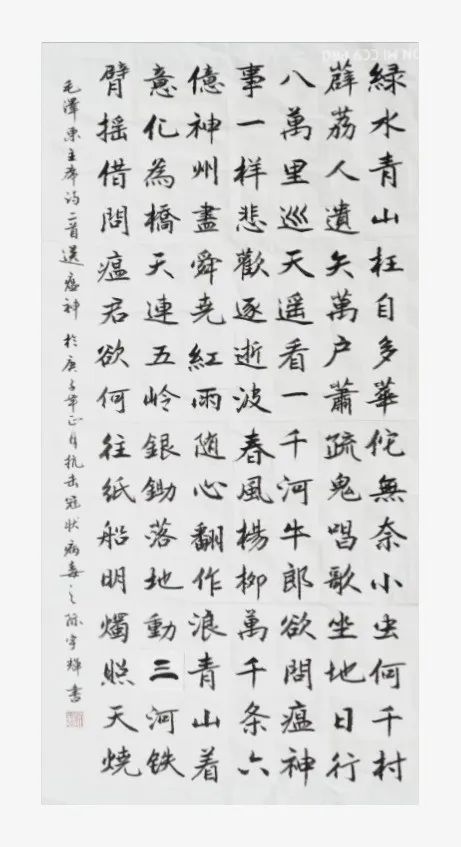 綠水青山枉自多華佗無奈小虫何千村
薜荔人遺矢萬户蕭疏鬼唱歌坐地日行
八萬里巡天遥看一千河牛郎欲問瘟神
事一样悲歡逐逝波春風楊柳萬千条六
億神州盡舜尧紅雨随心翻作浪青山着
意化為橋天連五岭銀鋤落地動三河铁
臂摇借問瘟君欲何往纸船明燭照天燒
毛澤東主席诗二首送瘟神 於庚子年正月抗击冠状病毒之际宇輝書